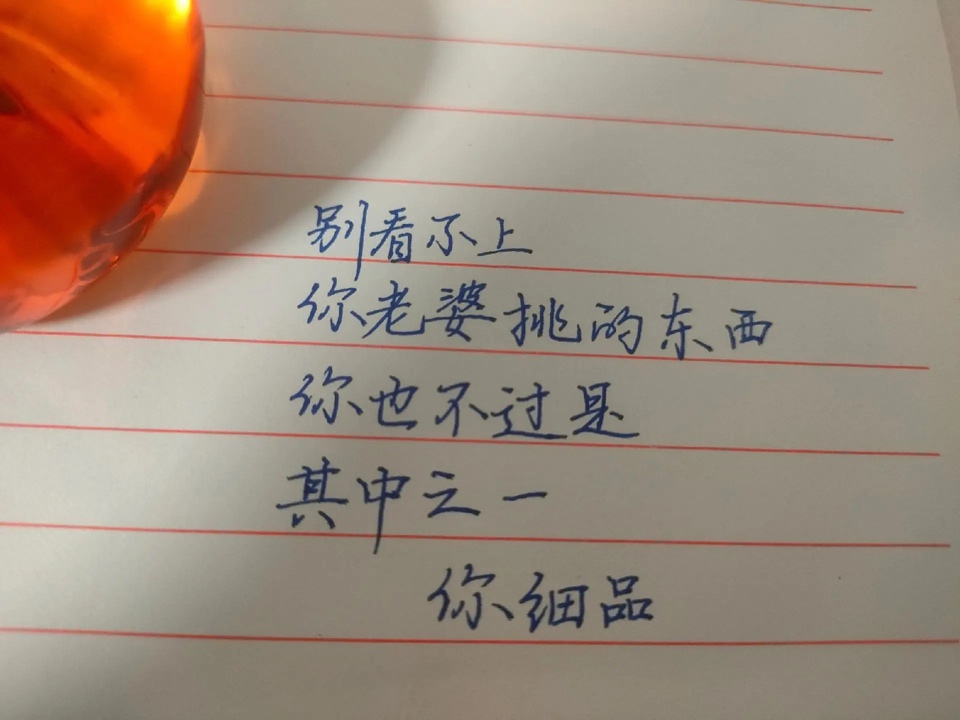 别看不上
你老婆挑的东西
你也不过是
其中之一
你细品